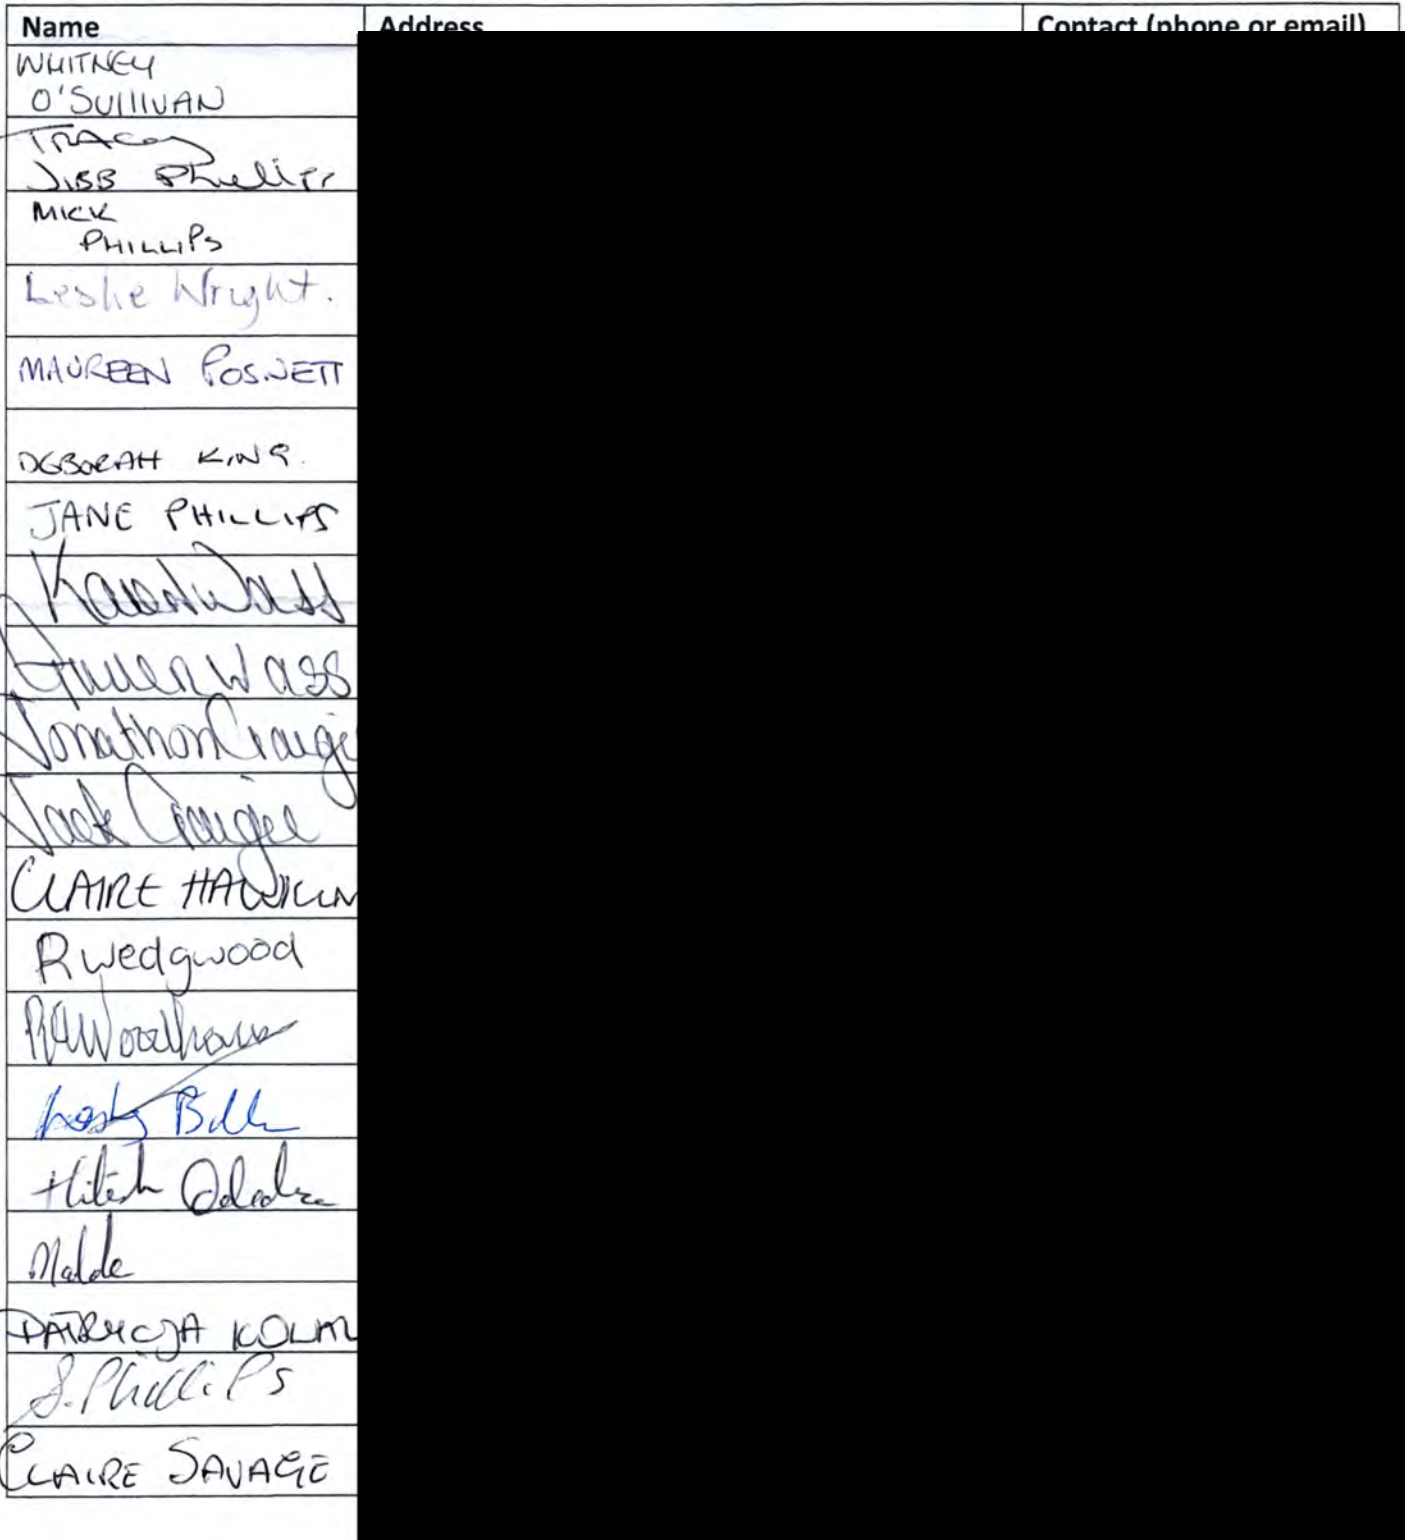 Name Address Contact (phone or email)
WHITNEY
O'SULLIVAN
TRACEY
JIBB Phillips
MICK
PHILLIPS
Leslie Wright.
MAUREEN POSNETT
DEBORAH KING.
JANE PHILLIPS
Karen Wass
Wass
Jonathon Craigi
Jack Craigie
CLAIRE
R Wedgwood
Woodhouse
Hitesh Odedra
Malde
PATRYCJA
S. Phillips
CLAIRE SAVAGE